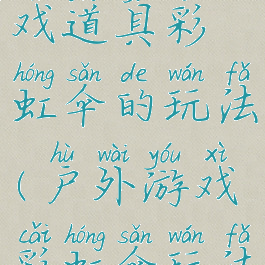 戏道具彩
hóng sǎn de wán fǎ
虹伞的玩法
hù wài yóu xì
(户外游戏
cǎi hóng sǎn wán fǎ
彩虹伞玩法